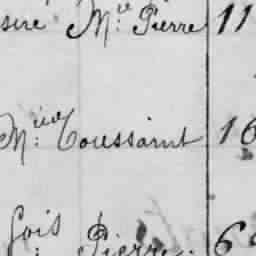 sire M.ie Pierre 11
M.ie Toussaint 16
fois Pierre. 6